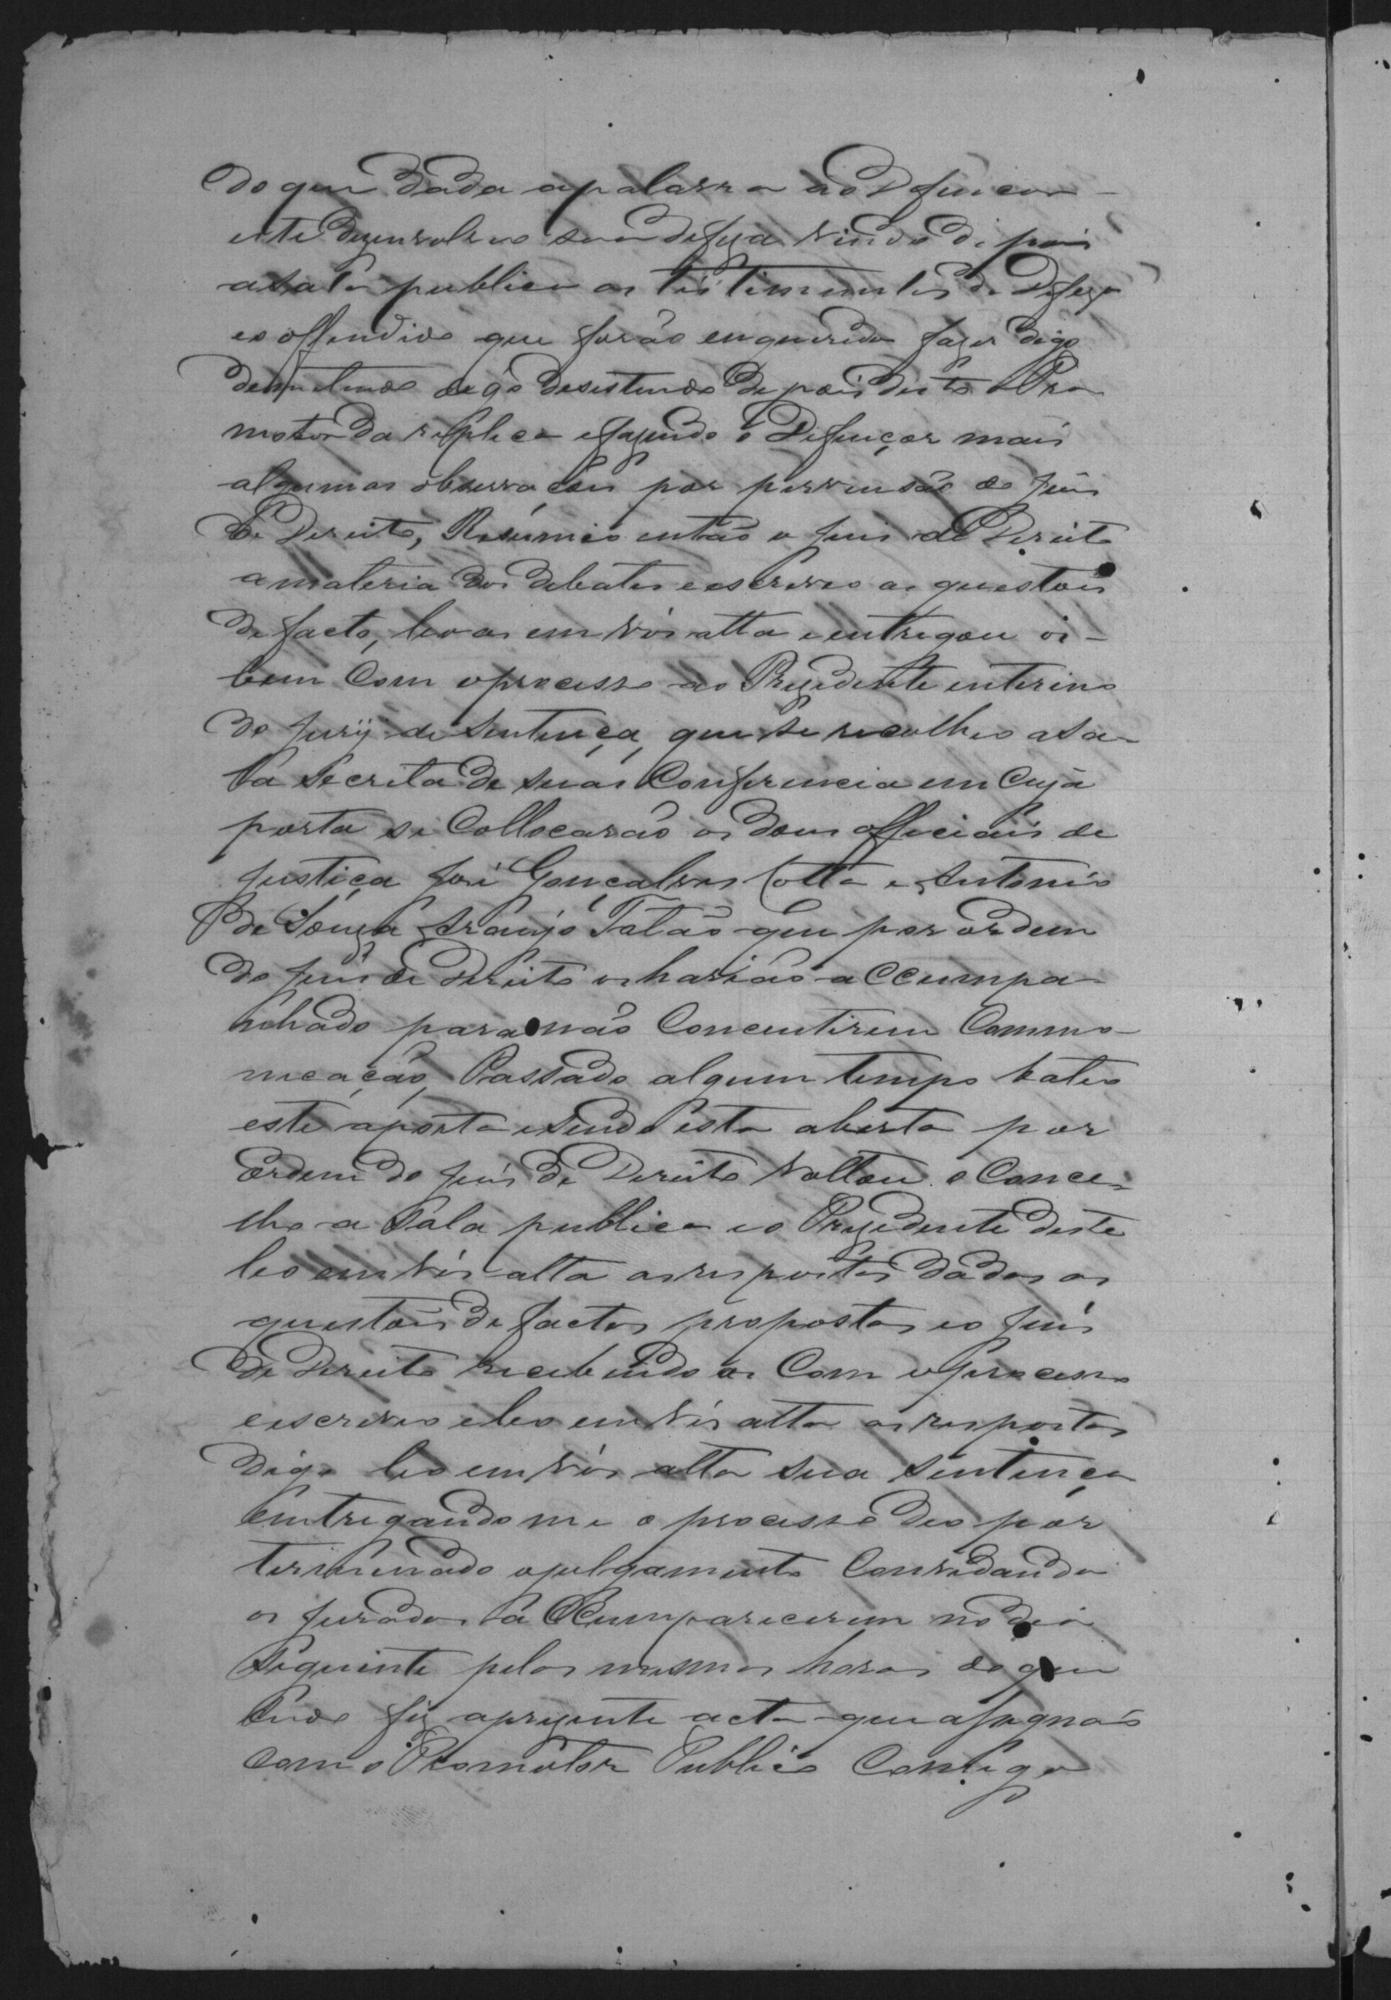 do que dada apalavra ao Defençor
este dezenvolveo sua defeza vindo depois
asala publica as testemunhas de Defeza
eo offendido que forão enqueridas fazer digo
desistindo depois deste o Pro
motor da replica efazendo o Defençor mais
algumas observações por permensão do Juis
de Direito, Resumio então o Juis de Direito
amateria dos debates eescreveo as questois
de facto, leo as em vós alta eentregou os
bem Com oprocesso ao Prezidente interino
do Jury de Sentença, que se recolheo asa
la Secreta de suas Conferencia em Cuja
porta se Collocarão os dous officiais de
Justiça José Gonçalves Cotta e Antonio
de Souza Araujo Talão que por ordem
do Juis de Direito os havião accumpa
nhado para não Concentirem Commo
nicação, Passado algum tempo bateo
este aporta esendo esta aberta por
Ordem do Juis de Direito Voltou o Conce
lho a Sala publica eo Prezidente deste
leo em vós alta as respostas dadas as
questois de factos propostas eo Juis
de Direito recebendo as Com oprocesso
eescreveo eleo em vós alta as respostas
digo leo em vós alta sua Sentença
Entregandome o processo deo por
terminado ojulgamento Convidando
os Jurados a Cumparecerem no dia
Seguinte pelas mesmas horas do que
tudo fiz aprezente acta que assignão
com o Promotor Publico Comigo